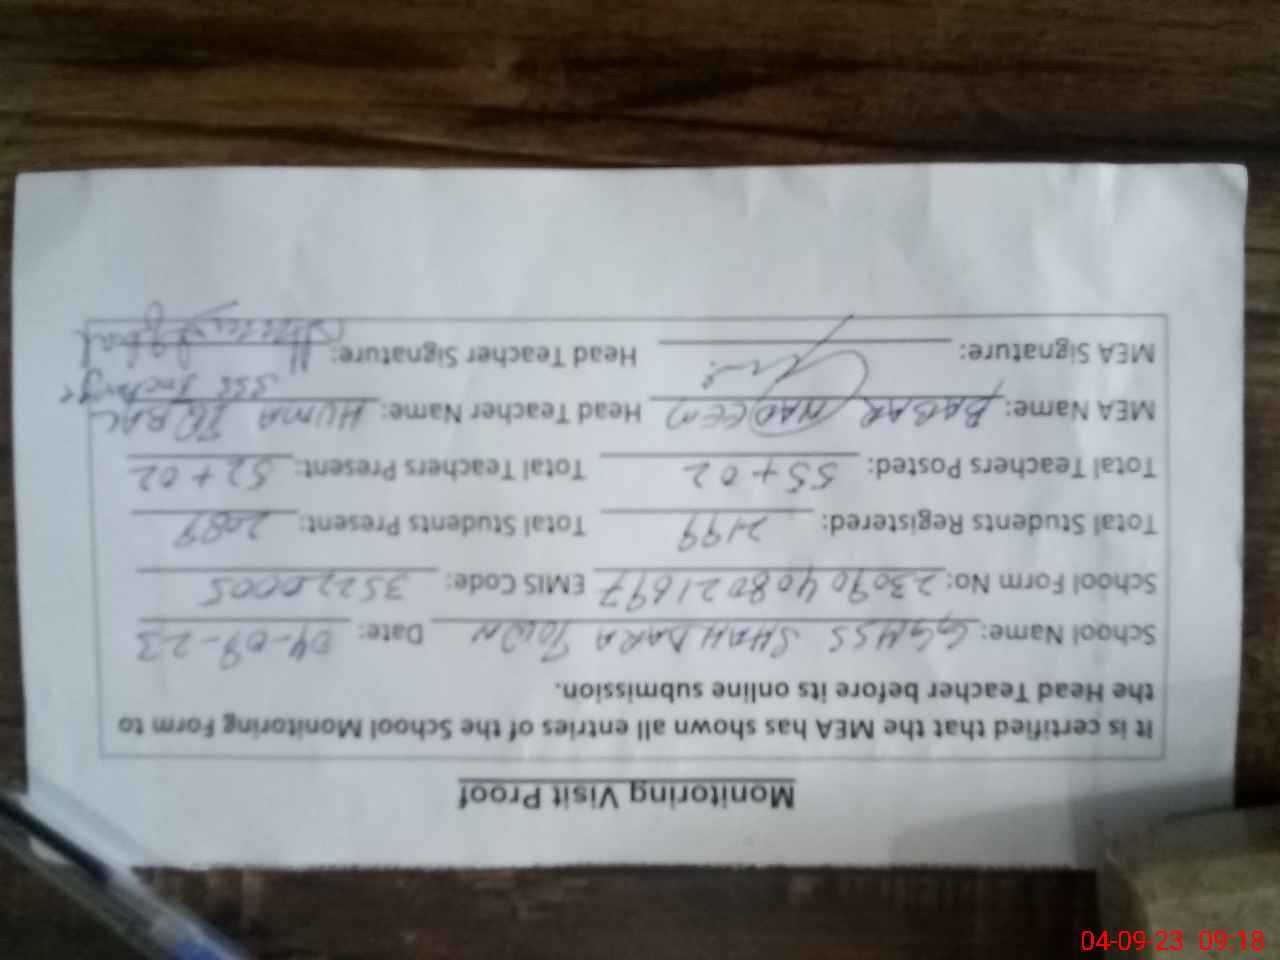 Monitoring Visit Proof
It is certified that the MEA has shown all entries of the School Monitoring Form to
the Head Teacher before its online submission.
School Name: GGHSS SHAHDARA TOWN Date: 04-09-23
School Form No: 23090408021697 EMIS Code: 35220005
Total Students Registered: 2199 Total Students Present: 2089
Total Teachers Posted: 55+02 Total Teachers Present: 52+02
MEA Name: BABAR NADEEM Head Teacher Name: HUMA IQBAL
SSE Incharge
MEA Signature: Head Teacher Signature: Huma Iqbal
04-09-23 09:18